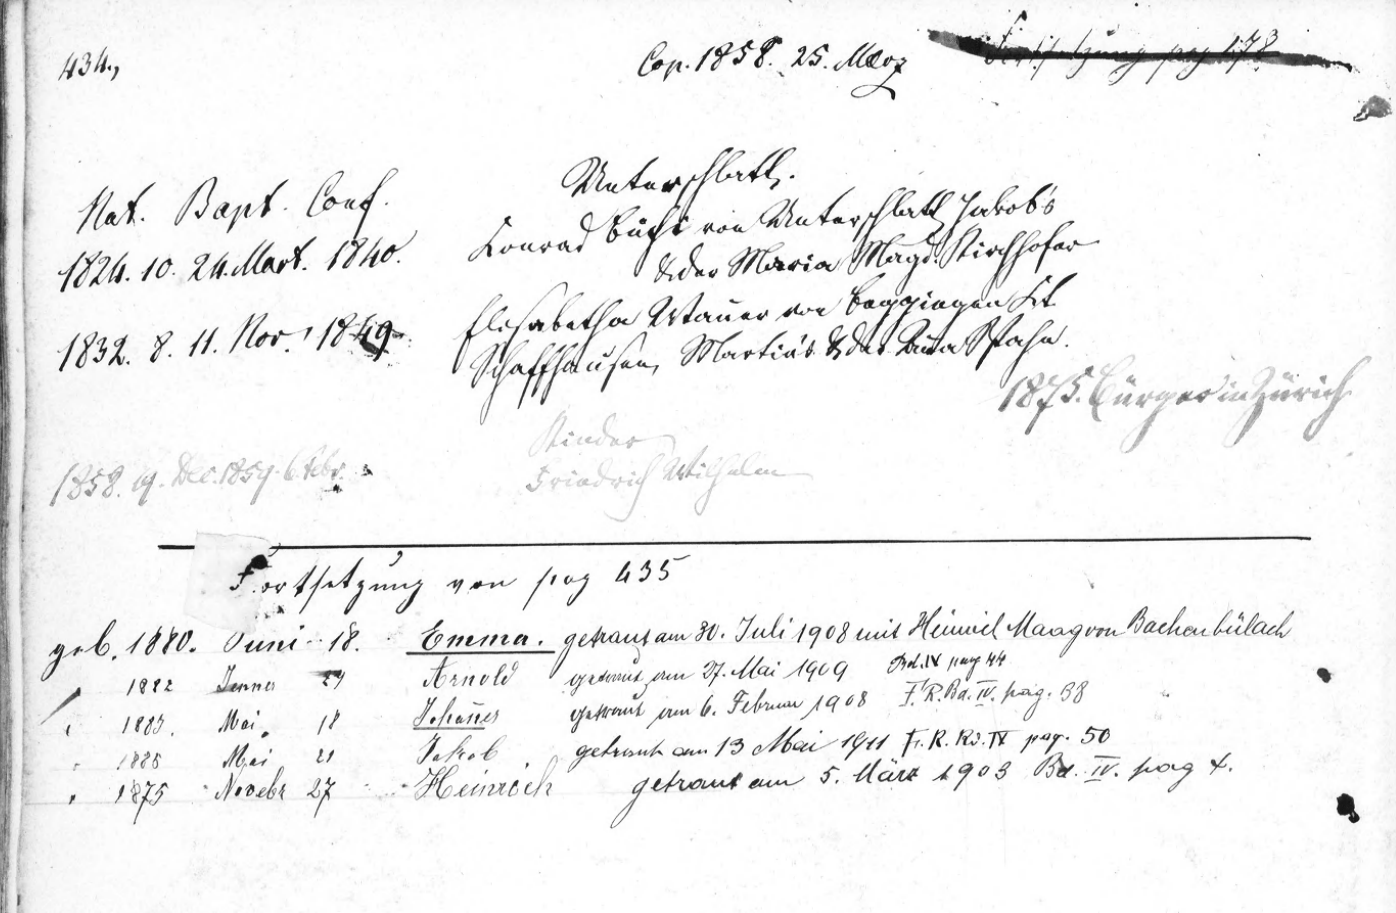 434.,
Cop. 1858. 25. März
Fortsetzung pag 178
Unterschlatt.
Nat. Bapt. Conf.
1824. 10. 24. Mart. 1840. Konrad Buchi von Unterschlatt Jakob's
& der Maria Magd. Kirchhofer
1832. 8. 11. Nov. 1849 Elisabetha Wanner von Beggingen Kt.
Schaffhausen, Martin's & der Anna Spahn.
1875. Bürger in Zürich
Kinder
1858. 19. Dec. 1859. 6. Febr. Friedrich Wilhelm
Fortsetzung von pag 435
geb. 1880. Juni 18. Emma. getraut am 30. Juli 1908 mit Heinrich Maag von Bachenbülach
" 1882 Jenner 29 Arnold getraut am 27. Mai 1909 Bd. IV pag 44
" 1883. Mai 18 Johannes getraut am 6. Februar 1908 F. R. Bd. IV. pag. 38
" 1885 Mai 21 Jakob getraut am 13 Mai 1911 F. R. Bd. IV pag. 50
" 1875 Novebr 27 Heinrich getraut am 5. März 1903 Bd. IV. pag 4.